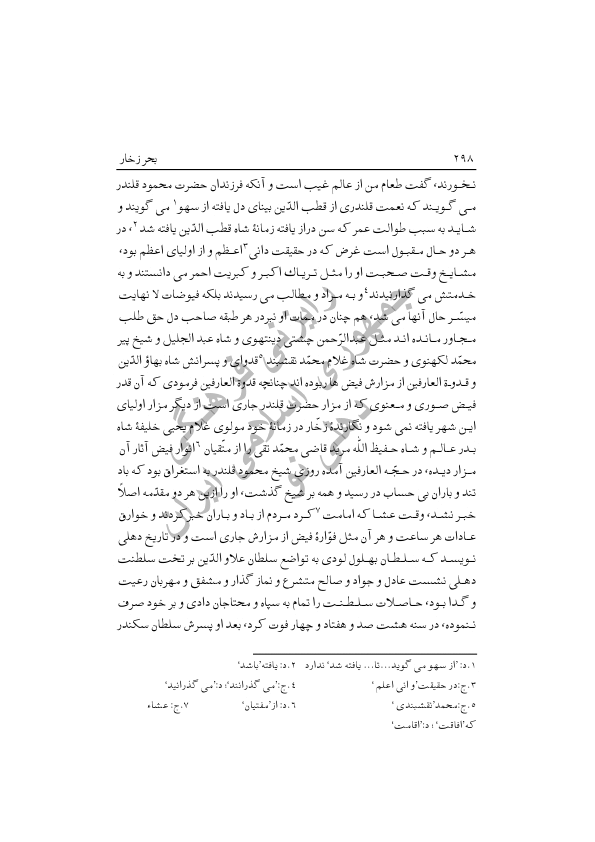 ۲۹۸ بحر زخار
نخورند، گفت طعام من از عالم غیب است و آنکه فرزندان حضرت محمود قلندر
می گویند که نعمت قلندری از قطب الدّین بینای دل یافته از سهو۱ می گویند و
شاید به سبب طوالت عمر که سن دراز یافته زمانۀ شاه قطب الدّین یافته شد۲، در
هر دو حال مقبول است غرض که در حقیقت دانی۳ اعظم و از اولیای اعظم بود،
مشایخ وقت صحبت او را مثل تریاك اکبر و کبریت احمر می دانستند و به
خدمتش می گذارنیدند۴ و به مراد و مطالب می رسیدند بلکه فیوضات لا نهایت
میسّر حال آنها می شد، هم چنان در ممات او نیز در هر طبقه صاحب دل حق طلب
مجاور مانده اند مثل عبدالرّحمن چشتی دینتهوی و شاه عبد الجلیل و شیخ پیر
محمّد لکهنوی و حضرت شاه غلام محمّد نقشبند۵ قدوای و پسرانش شاه بهاؤ الدّین
و قدوة العارفین از مزارش فیض ها ربوده اند چنانچه قدوة العارفین فرمودی که آن قدر
فیض صوری و معنوی که از مزار حضرت قلندر جاری است از دیگر مزار اولیای
این شهر یافته نمی شود و نگارندۀ زخّار در زمانۀ خود مولوی غلام یحیی خلیفۀ شاه
بدر عالم و شاه حفیظ اللّه مرید قاضی محمّد تقی را از متّقیان۶ انوار فیض آثار آن
مزار دیده، در حجّه العارفین آمده روزی شیخ محمود قلندر به استغراق بود که باد
تند و باران بی حساب در رسید و همه بر شیخ گذشت، او را ازین هر دو مقدّمه اصلاً
خبر نشد، وقت عشا که امامت۷ کرد مردم از باد و باران خبر کردند و خوارق
عادات هر ساعت و هر آن مثل فوّارۀ فیض از مزارش جاری است و در تاریخ دهلی
نویسد که سلطان بهلول لودی به تواضع سلطان علاو الدّین بر تخت سلطنت
دهلی نشست عادل و جواد و صالح متشرع و نماز گذار و مشفق و مهربان رعیت
و گدا بود، حاصلات سلطنت را تمام به سپاه و محتاجان دادی و بر خود صرف
ننموده، در سنه هشت صد و هفتاد و چهار فوت کرد، بعد او پسرش سلطان سکندر
۱.د: 'از سهو می گوید...تا... یافته شد' ندارد ۲.د: یافته 'باشد'
۳.ج:در حقیقت 'و انی اعلم' ۴.ج: 'می گذرانند'؛ د: 'می گذرانید'
۵.ج:محمد 'نقشبندی' ۶.د: از 'مفتیان' ۷.ج: عشاء
که 'افاقت'؛ د: 'اقامت'